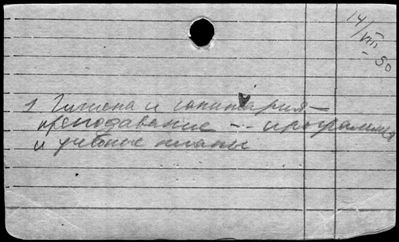 14/VIII-50
1 Гигиена и санитария —
преподавание -- программы
и учебные планы